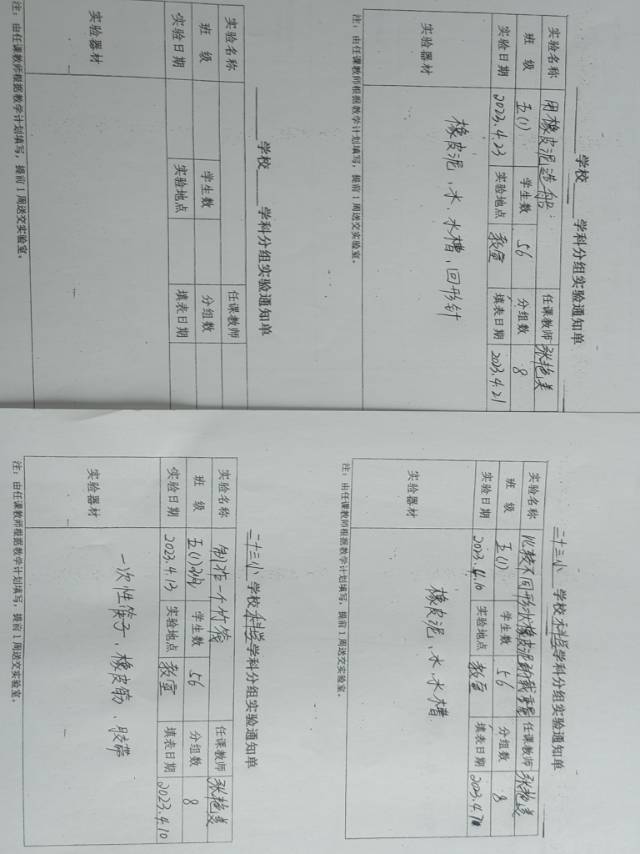 学校 学科分组实验通知单
实验名称 用橡皮泥造船 任课教师 张艳美
班 级 五(1) 学生数 56 分组数 8
实验日期 2023.4.23 实验地点 教室 填表日期 2023.4.21
实验器材 橡皮泥、水 水槽、回形针
注：由任课教师根据教学计划填写，提前1周送交实验室。
学校 学科分组实验通知单
实验名称 任课教师
班 级 学生数 分组数
实验日期 实验地点 填表日期
实验器材
注：由任课教师根据教学计划填写，提前1周送交实验室。
二十三小 学校 科学 学科分组实验通知单
实验名称 比较不同形状橡皮泥的载重量 任课教师 张艳美
班 级 五(1) 学生数 56 分组数 8
实验日期 2023.4.10 实验地点 教室 填表日期
实验器材 橡皮泥、水、水槽
注：由任课教师根据教学计划填写，提前1周送交实验室。
二十三小 学校 科学 学科分组实验通知单
实验名称 制作一个竹筏 任课教师 张艳美
班 级 五(1) 学生数 56 分组数 8
实验日期 2023.4.13 实验地点 教室 填表日期 2023.4.10
实验器材 一次性筷子、橡皮筋、胶带
注：由任课教师根据教学计划填写，提前1周送交实验室。